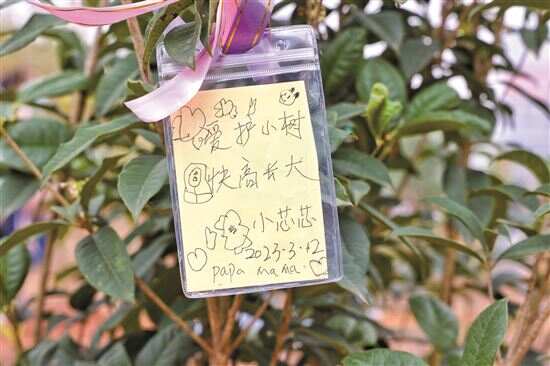 爱护小树
快高长大
小芯芯
2023.3.12
papa mama.